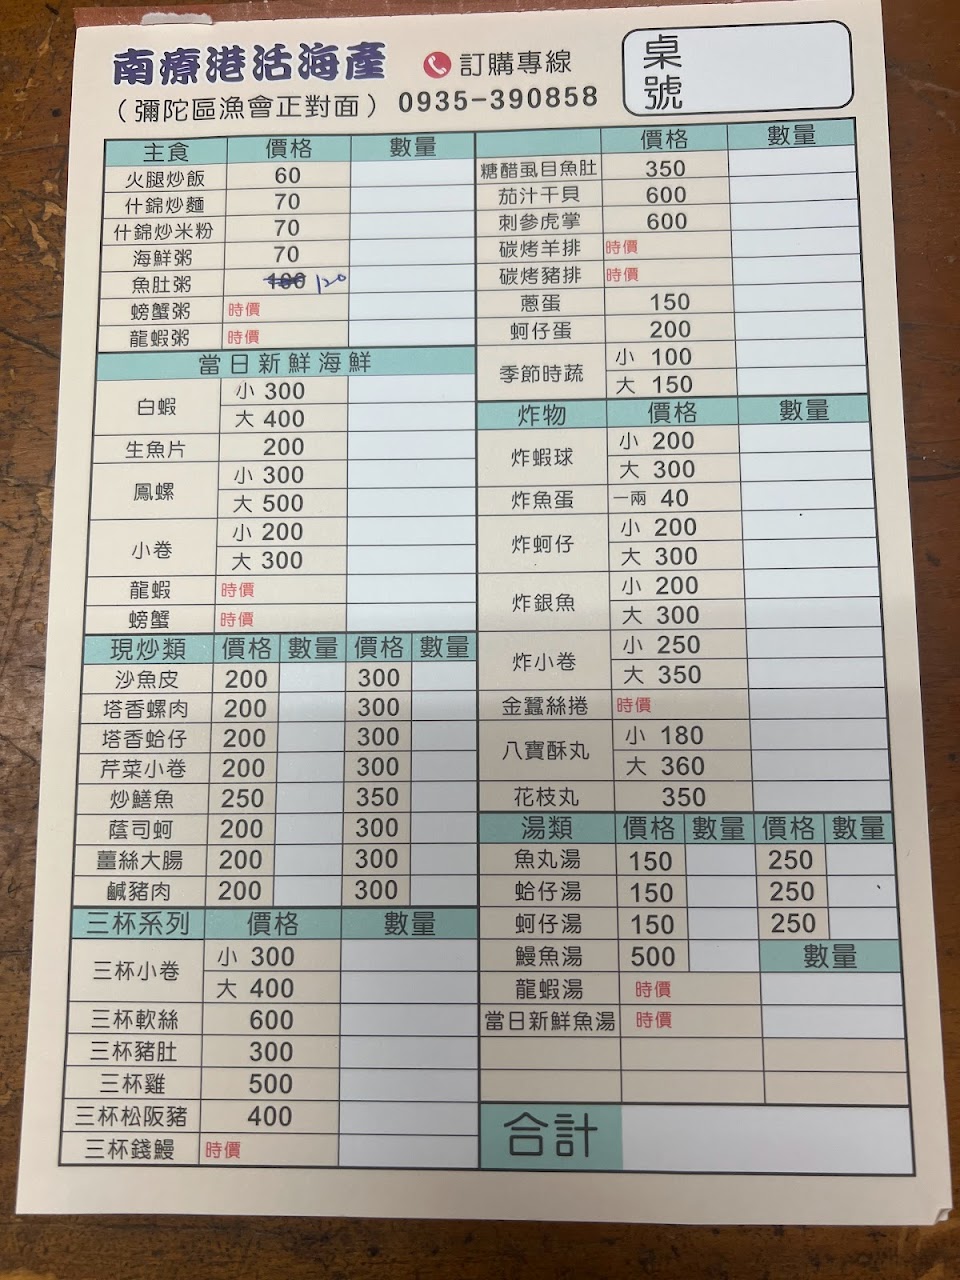 南療港活海產
訂購專線
(彌陀區漁會正對面)
0935-390858
桌號
主食 價格 數量
火腿炒飯 60
什錦炒麵 70
什錦炒米粉 70
海鮮粥 70
魚肚粥 100 120
螃蟹粥 時價
龍蝦粥 時價
當日新鮮海鮮
白蝦 小 300
大 400
生魚片 200
鳳螺 小 300
大 500
小卷 小 200
大 300
龍蝦 時價
螃蟹 時價
現炒類 價格 數量 價格 數量
沙魚皮 200 300
塔香螺肉 200 300
塔香蛤仔 200 300
芹菜小卷 200 300
炒鱔魚 250 350
蔭司蚵 200 300
薑絲大腸 200 300
鹹豬肉 200 300
三杯系列 價格 數量
三杯小卷 小 300
大 400
三杯軟絲 600
三杯豬肚 300
三杯雞 500
三杯松阪豬 400
三杯錢鰻 時價
價格 數量
糖醋虱目魚肚 350
茄汁干貝 600
刺參虎掌 600
碳烤羊排 時價
碳烤豬排 時價
蔥蛋 150
蚵仔蛋 200
季節時蔬 小 100
大 150
炸物 價格 數量
炸蝦球 小 200
大 300
炸魚蛋 一兩 40
炸蚵仔 小 200
大 300
炸銀魚 小 200
大 300
炸小卷 小 250
大 350
金蠶絲捲 時價
八寶酥丸 小 180
大 360
花枝丸 350
湯類 價格 數量 價格 數量
魚丸湯 150 250
蛤仔湯 150 250
蚵仔湯 150 250
鰻魚湯 500 數量
龍蝦湯 時價
當日新鮮魚湯 時價
合計